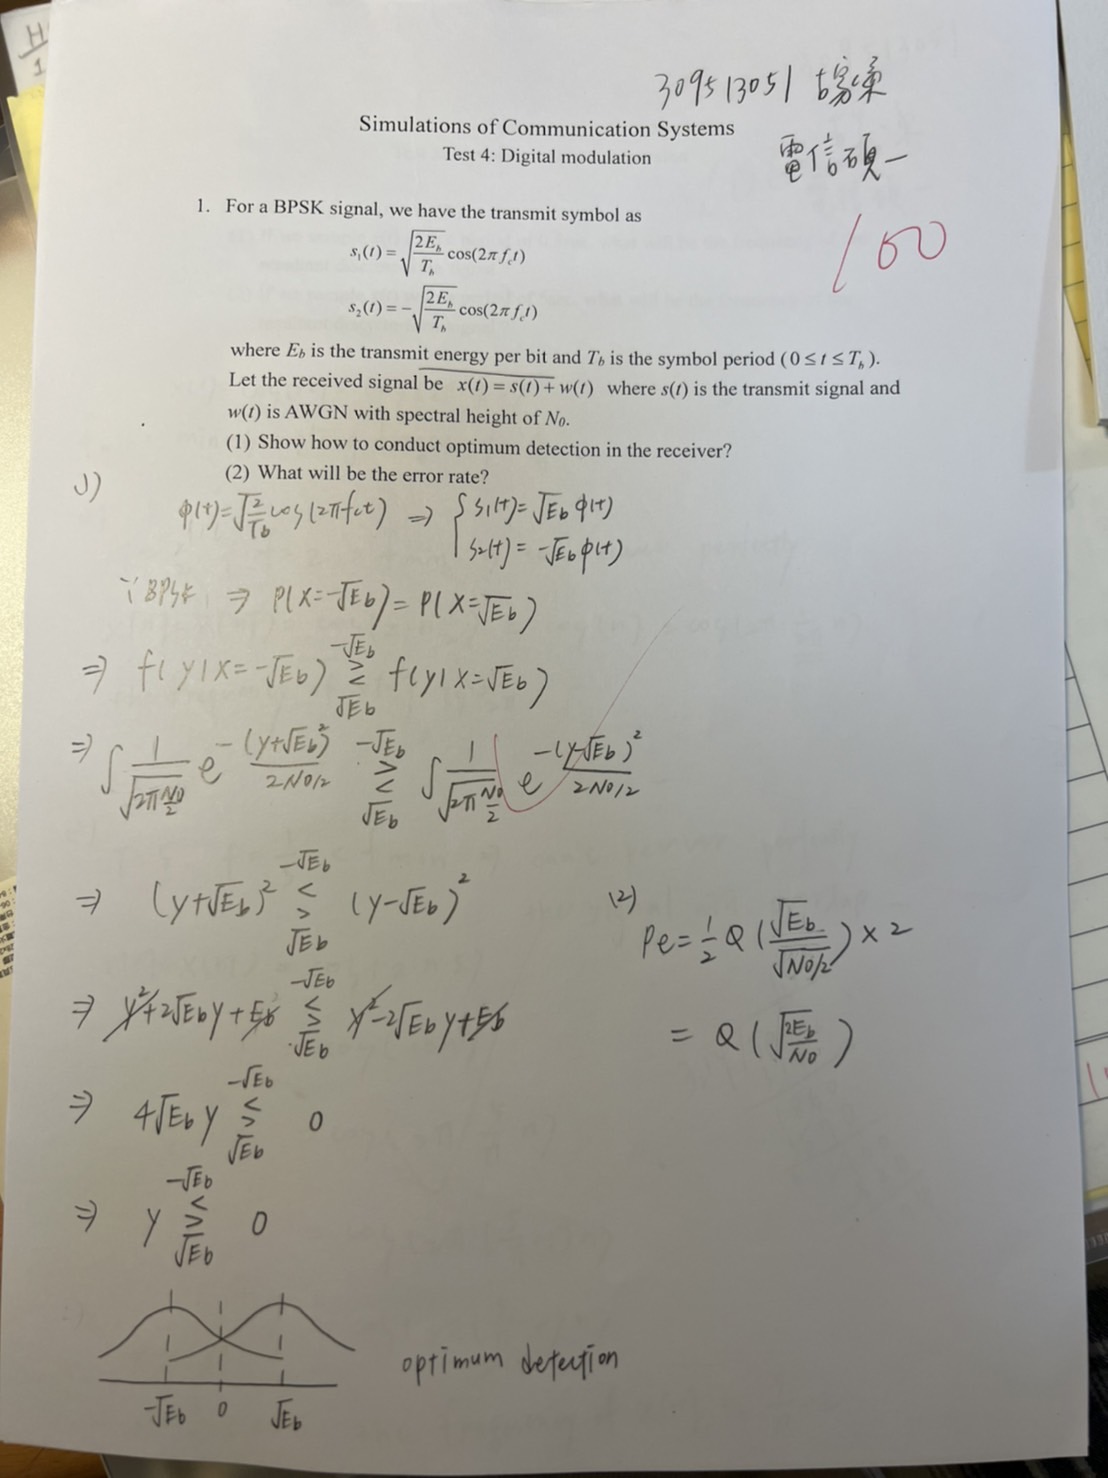 309513051 
電信碩一
100
Simulations of Communication Systems
Test 4: Digital modulation
1. For a BPSK signal, we have the transmit symbol as
s₁(t) = √(2E_b/T_b) cos(2π f_c t)
s₂(t) = -√(2E_b/T_b) cos(2π f_c t)
where E_b is the transmit energy per bit and T_b is the symbol period (0 ≤ t ≤ T_b).
Let the received signal be x(t) = s(t) + w(t) where s(t) is the transmit signal and
w(t) is AWGN with spectral height of N₀.
(1) Show how to conduct optimum detection in the receiver?
(2) What will be the error rate?
1)
ϕ(t)=√(2/Tb) cos(2πfct) ⇒ { s1(t)=√Eb ϕ(t)
s2(t)= -√Eb ϕ(t)
∵ BPSK ⇒ P(X=-√Eb)=P(X=√Eb)
⇒ f(y|X=-√Eb) -√Eb ≷ √Eb f(y|X=√Eb)
⇒ ∫ 1/√(2π N0/2) e^-(y+√Eb)²/(2N0/2) -√Eb ≷ √Eb ∫ 1/√(2π N0/2) e^-(y-√Eb)²/(2N0/2)
⇒ (y+√Eb)² -√Eb ≶ √Eb (y-√Eb)²
⇒ y²+2√Eb y+Eb -√Eb ≶ √Eb y²-2√Eb y+Eb
⇒ 4√Eb y -√Eb ≶ √Eb 0
⇒ y -√Eb ≶ √Eb 0
-√Eb 0 √Eb
optimum detection
(2)
Pe = 1/2 Q(√Eb/√(N0/2)) × 2
= Q(√(2Eb/N0))